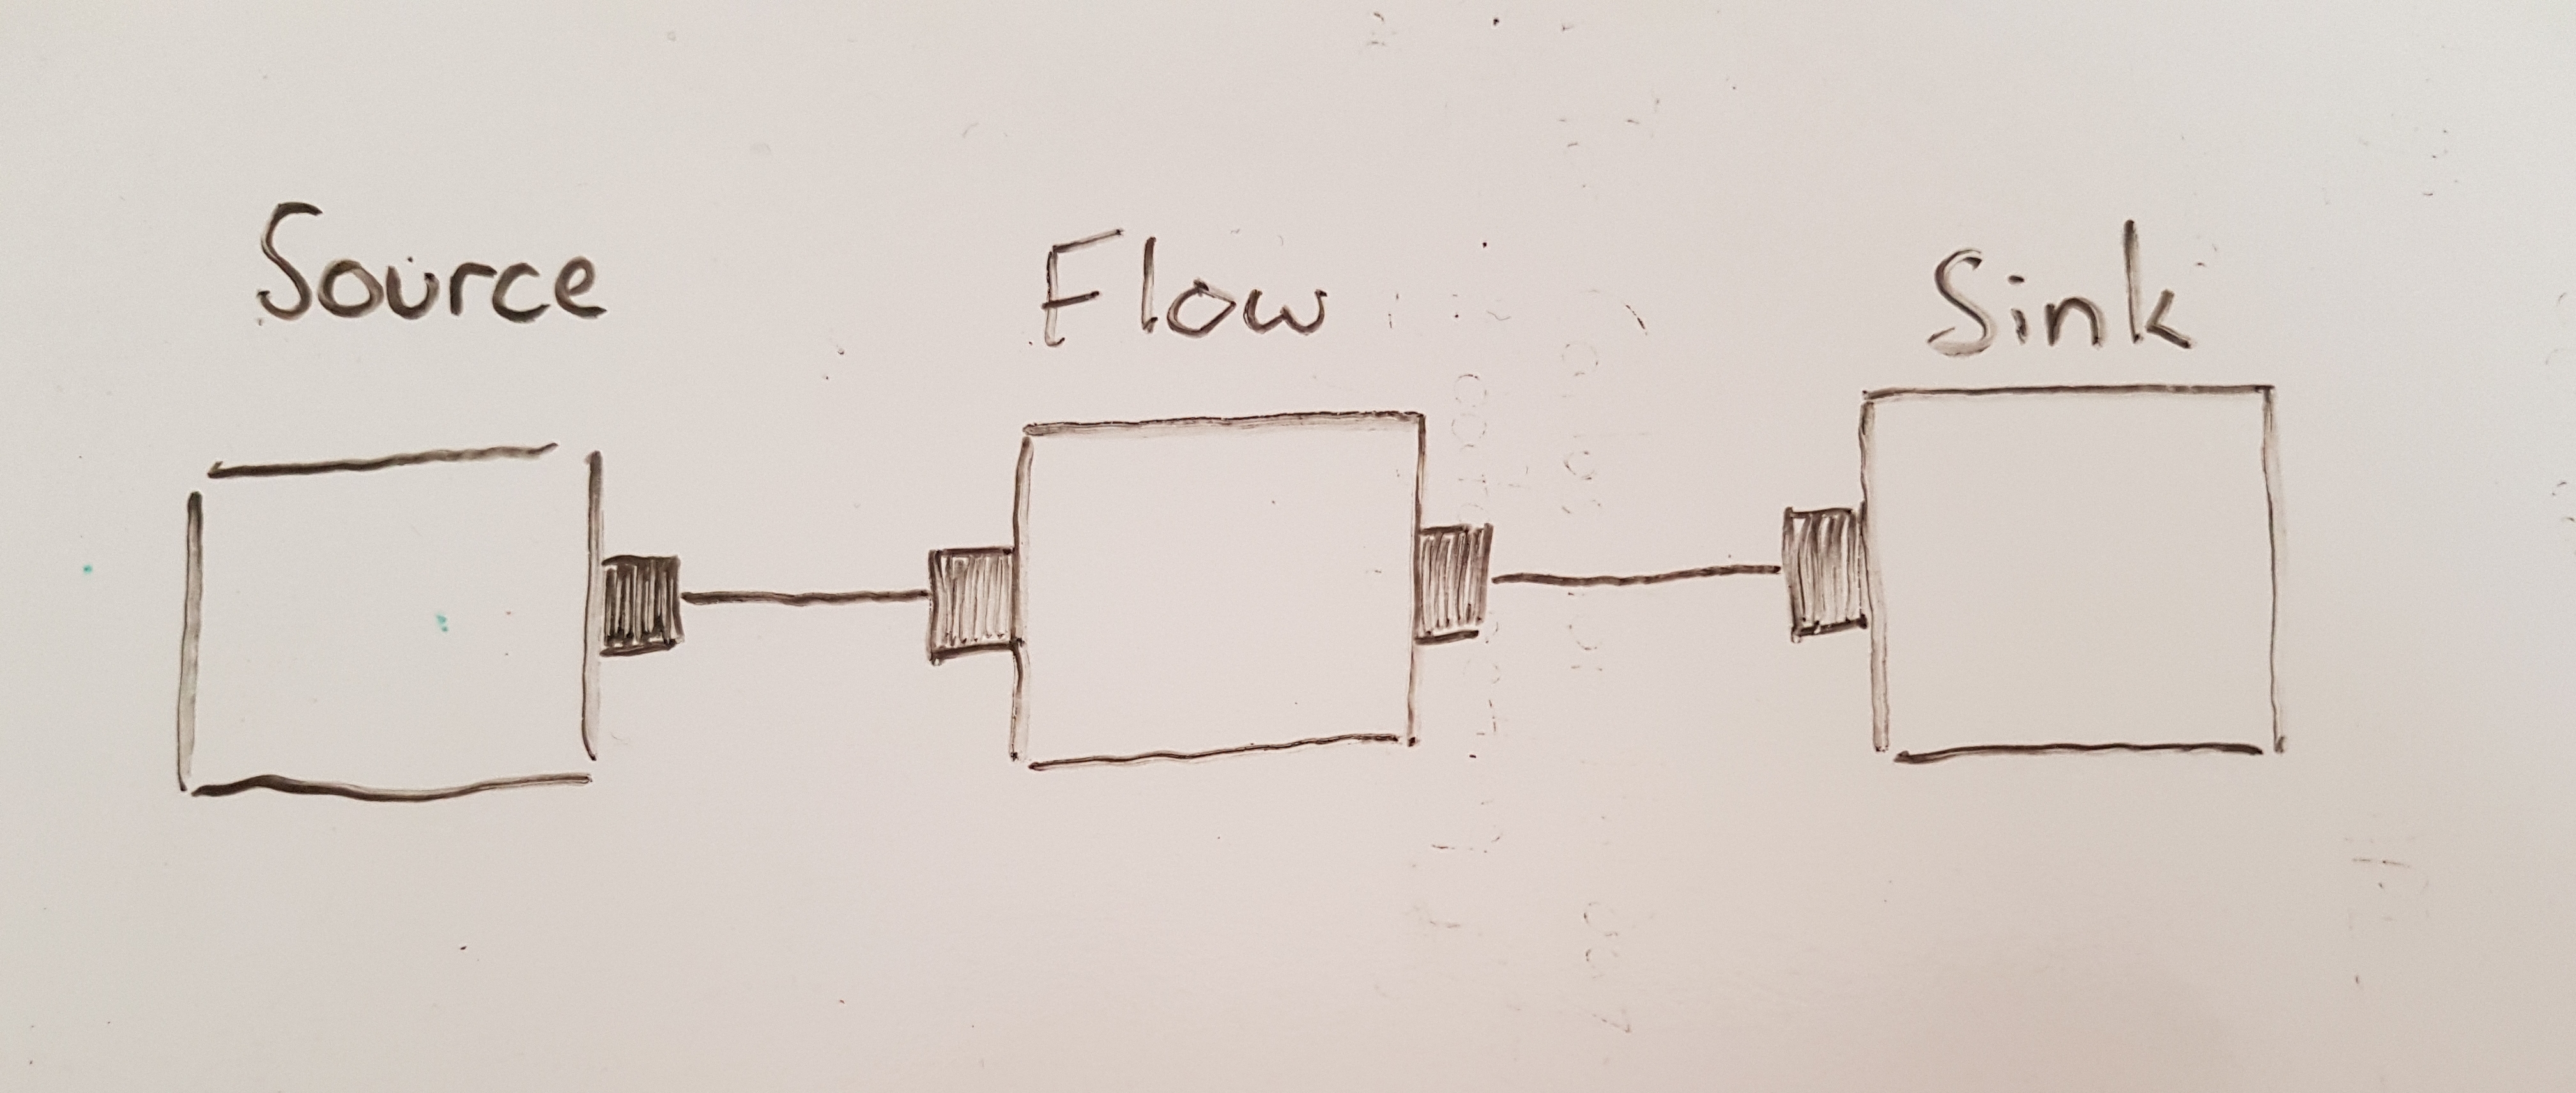 Source
Flow
Sink